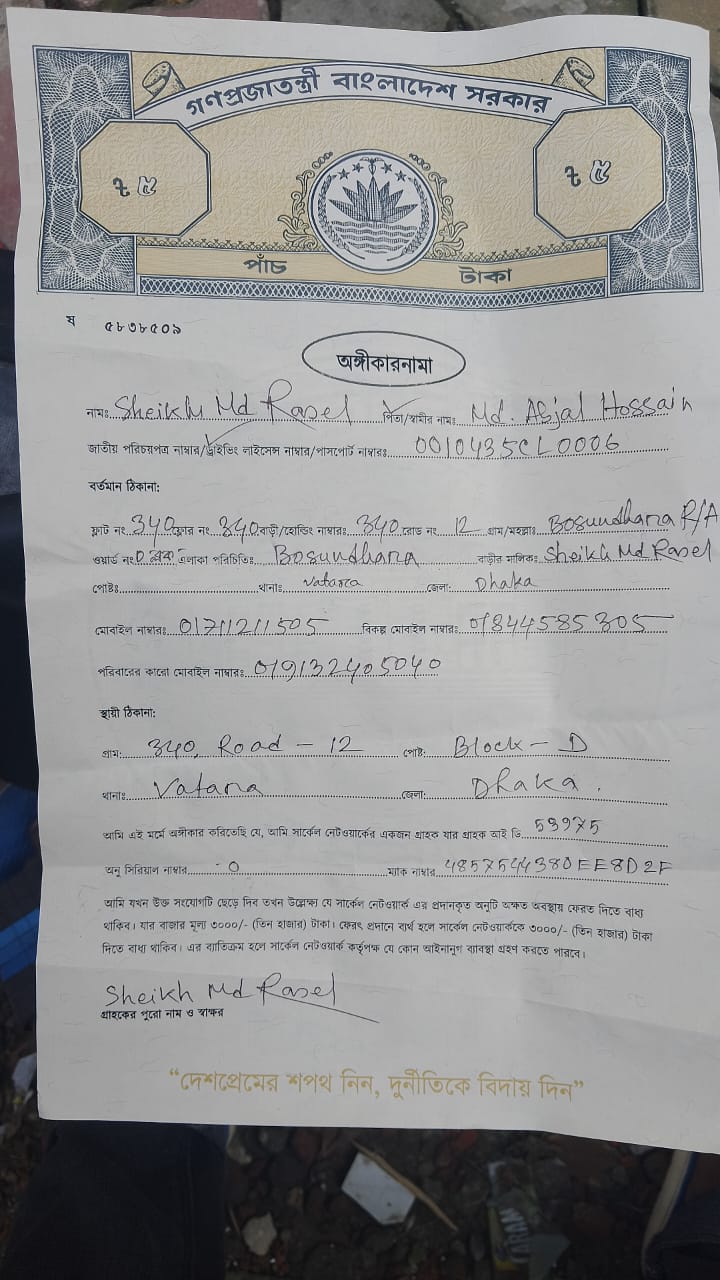 গণপ্রজাতন্ত্রী বাংলাদেশ সরকার
৳ ৫ ৳ ৫
পাঁচ টাকা
ষ ৫৮৩৮৫০৯
অঙ্গীকারনামা
নামঃ Sheikh Md Rasel পিতা/স্বামীর নামঃ Md. Abjal Hossain
জাতীয় পরিচয়পত্র নাম্বার/ড্রাইভিং লাইসেন্স নাম্বার/পাসপোর্ট নাম্বারঃ 0010435CL0006
বর্তমান ঠিকানা:
ফ্লাট নং 340 ফ্লোর নং 340 বাড়ী/হোল্ডিং নাম্বারঃ 340 রোড নং 12 গ্রাম/মহল্লাঃ Bosundhara R/A
ওয়ার্ড নং D ব্লক এলাকা পরিচিতিঃ Bosundhara বাড়ীর মালিকঃ Sheikh Md Rasel
পোষ্টঃ থানাঃ Vatara জেলা: Dhaka
মোবাইল নাম্বারঃ 01711211505 বিকল্প মোবাইল নাম্বারঃ 01844585305
পরিবারের কারো মোবাইল নাম্বারঃ 019132405040
স্থায়ী ঠিকানা:
গ্রাম: 340, Road - 12 পোষ্ট: Block - D
থানাঃ Vatara জেলা: Dhaka.
আমি এই মর্মে অঙ্গীকার করিতেছি যে, আমি সার্কেল নেটওয়ার্কের একজন গ্রাহক যার গ্রাহক আই ডি 53975
অনু সিরিয়াল নাম্বার 0 ম্যাক নাম্বার 4857544380EE8D2F
আমি যখন উক্ত সংযোগটি ছেড়ে দিব তখন উল্লেক্ষ্য যে সার্কেল নেটওয়ার্ক এর প্রদানকৃত অনুটি অক্ষত অবস্থায় ফেরত দিতে বাধ্য
থাকিব। যার বাজার মূল্য ৩০০০/- (তিন হাজার) টাকা। ফেরৎ প্রদানে ব্যর্থ হলে সার্কেল নেটওয়ার্ককে ৩০০০/- (তিন হাজার) টাকা
দিতে বাধ্য থাকিব। এর ব্যতিক্রম হলে সার্কেল নেটওয়ার্ক কর্তৃপক্ষ যে কোন আইনানুগ ব্যাবস্থা গ্রহণ করতে পারবে।
Sheikh Md Rasel
গ্রাহকের পুরো নাম ও স্বাক্ষর
“দেশপ্রেমের শপথ নিন, দুর্নীতিকে বিদায় দিন”